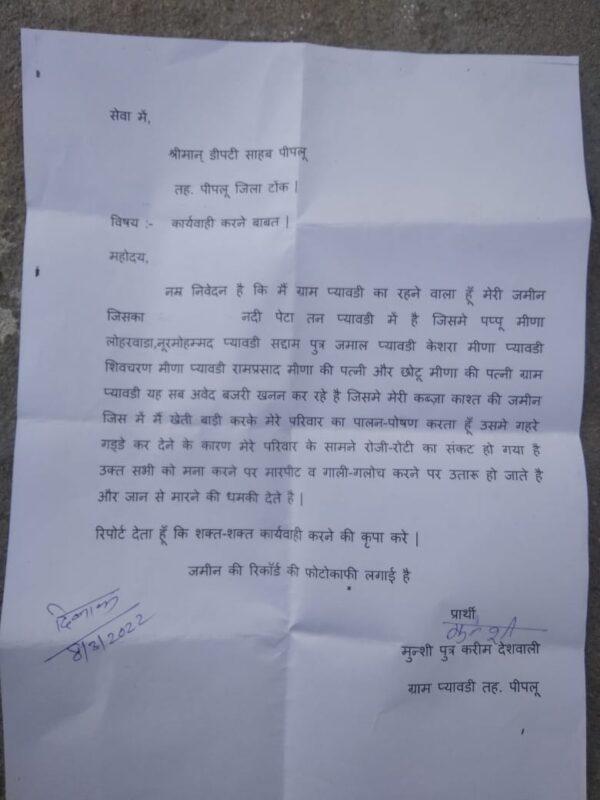 सेवा में,
श्रीमान् डीपटी साहब पीपलू
तह. पीपलू जिला टोंक |
विषय :- कार्यवाही करने बाबत |
महोदय,
नम्र निवेदन है कि मैं ग्राम प्यावडी का रहने वाला हूँ मेरी जमीन
जिसका नदी पेटा तन प्यावडी में है जिसमे पप्पू मीणा
लोहरवाडा,नूरमोहम्मद प्यावडी सद्दाम पुत्र जमाल प्यावडी केशरा मीणा प्यावडी
शिवचरण मीणा प्यावडी रामप्रसाद मीणा की पत्नी और छोटू मीणा की पत्नी ग्राम
प्यावडी यह सब अवेद बजरी खनन कर रहे है जिसमे मेरी कब्ज़ा काश्त की जमीन
जिस में मैं खेती बाड़ी करके मेरे परिवार का पालन-पोषण करता हूँ उसमे गहरे
गड्डे कर देने के कारण मेरे परिवार के सामने रोजी-रोटी का संकट हो गया है
उक्त सभी को मना करने पर मारपीट व गाली-गलोच करने पर उतारू हो जाते है
और जान से मारने की धमकी देते है |
रिपोर्ट देता हूँ कि शक्त-शक्त कार्यवाही करने की कृपा करे |
जमीन की रिकॉर्ड की फोटोकाफी लगाई है
दिनांक
8/3/2022
प्रार्थी
मुन्शी
मुन्शी पुत्र करीम देशवाली
ग्राम प्यावडी तह. पीपलू